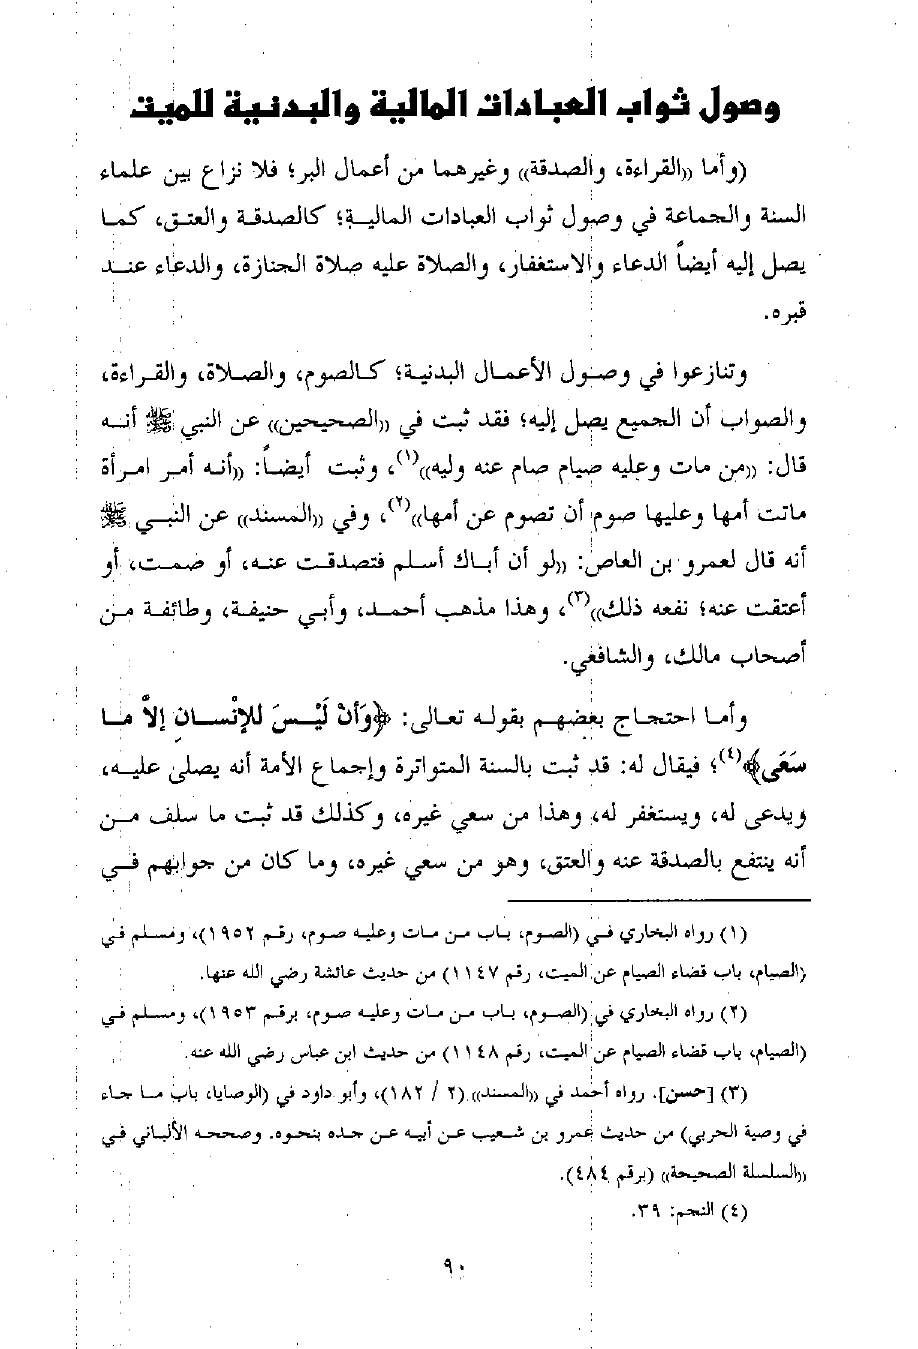 وصول ثواب العبادات المالية والبدنية للميت
(وأما ((القراءة، والصدقة)) وغيرهما من أعمال البر؛ فلا نزاع بين علماء
السنة والجماعة في وصول ثواب العبادات المالية؛ كالصدقة والعتق، كما
يصل إليه أيضاً الدعاء والاستغفار، والصلاة عليه صلاة الجنازة، والدعاء عند
قبره.
وتنازعوا في وصول الأعمال البدنية؛ كالصوم، والصلاة، والقراءة،
والصواب أن الجميع يصل إليه؛ فقد ثبت في ((الصحيحين)) عن النبي ﷺ أنه
قال: ((من مات وعليه صيام صام عنه وليه))(١)، وثبت أيضاً: ((أنه أمر امرأة
ماتت أمها وعليها صوم أن تصوم عن أمها))(٢)، وفي ((المسند)) عن النبي ﷺ
أنه قال لعمرو بن العاص: ((لو أن أباك أسلم فتصدقت عنه، أو صمت، أو
أعتقت عنه؛ نفعه ذلك))(٣)، وهذا مذهب أحمد، وأبي حنيفة، وطائفة من
أصحاب مالك، والشافعي.
وأما احتجاج بعضهم بقوله تعالى: ﴿وَأَنْ لَيْسَ للإنْسَانِ إلاَّ مَا
سَعَى﴾(٤)؛ فيقال له: قد ثبت بالسنة المتواترة وإجماع الأمة أنه يصلى عليه،
ويدعى له، ويستغفر له، وهذا من سعي غيره، وكذلك قد ثبت ما سلف من
أنه ينتفع بالصدقة عنه والعتق، وهو من سعي غيره، وما كان من جوابهم في
(١) رواه البخاري في (الصوم، باب من مات وعليه صوم، رقم ١٩٥٢)، ومسلم في
(الصيام، باب قضاء الصيام عن الميت، رقم ١١٤٧) من حديث عائشة رضي الله عنها.
(٢) رواه البخاري في (الصوم، باب من مات وعليه صوم، برقم ١٩٥٣)، ومسلم في
(الصيام، باب قضاء الصيام عن الميت، رقم ١١٤٨) من حديث ابن عباس رضي الله عنه.
(٣) [حسن]. رواه أحمد في ((المسند)) (٢ / ١٨٢)، وأبو داود في (الوصايا، باب ما جاء
في وصية الحربي) من حديث عمرو بن شعيب عن أبيه عن جده بنحوه. وصححه الألباني في
((السلسلة الصحيحة)) (برقم ٤٨٤).
(٤) النجم: ٣٩.
٩٠